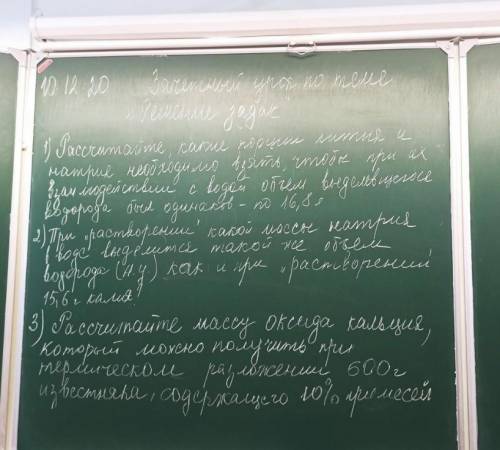 10.12.20 Зачётный урок по теме
„Решение задач"
1) Рассчитайте, какие порции лития и
натрия необходимо взять, чтобы при их
взаимодействии с водой объём выделившегося
водорода был одинаков - по 16,8 л
2) При „растворении" какой массы натрия
в воде выделится такой же объём
водорода (н.у) как и при „растворении"
15,6 г калия?
3) Рассчитайте массу оксида кальция,
который можно получить при
термическом разложении 600 г
известняка, содержащего 10% примесей